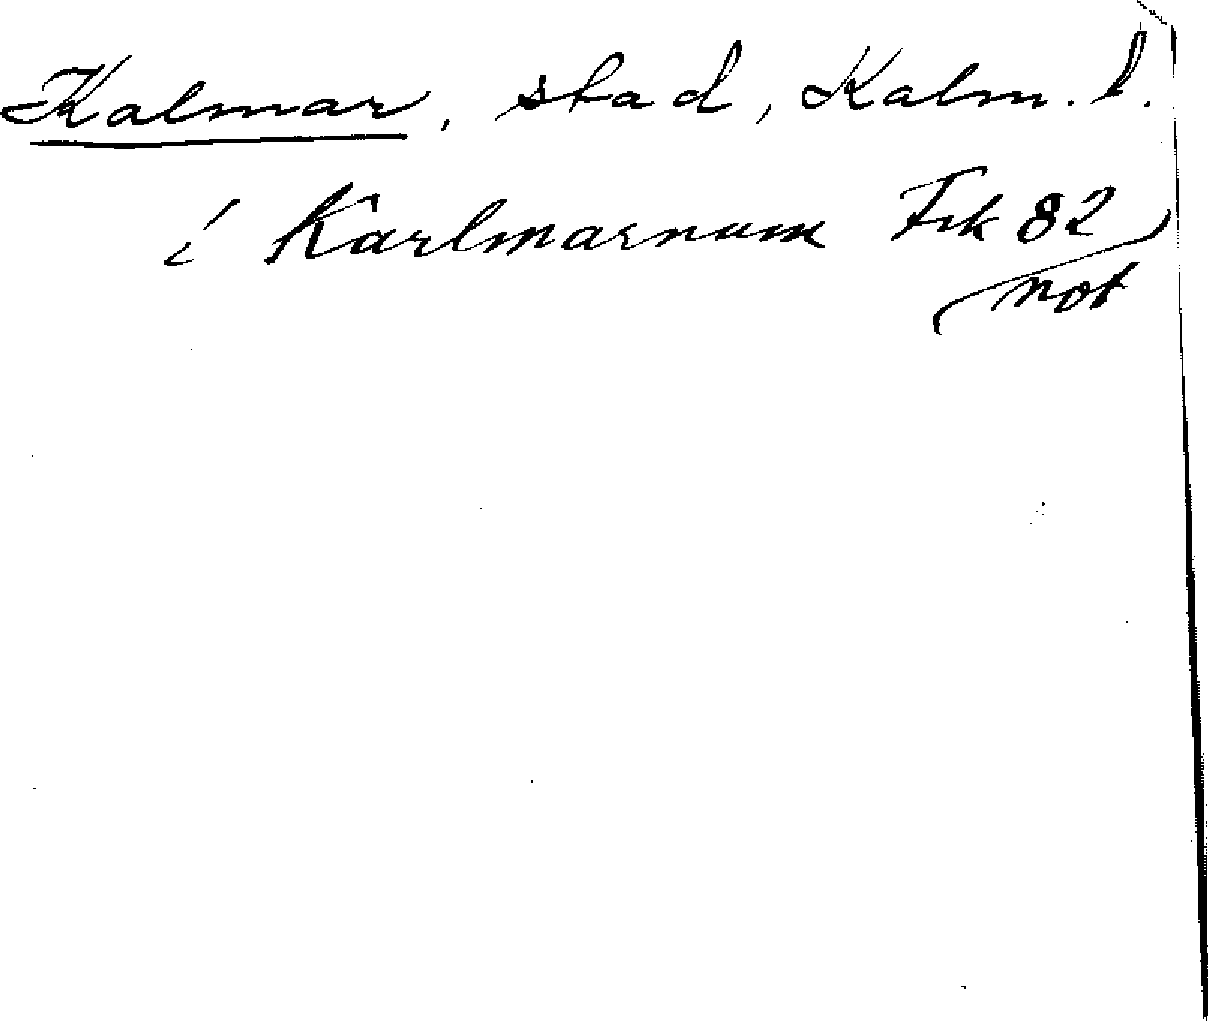 Kalmar, stad, Kalm. l.
í Karlmarnum Frk 82
not